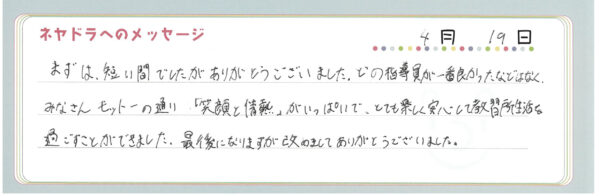 ネヤドラへのメッセージ
4月 19日
まずは、短い間でしたがありがとうございました。どの指導員が一番良かったなどではなく、
みなさん モットーの通り 「笑顔と情熱」がいっぱいで、とても楽しく安心して教習所生活を
過ごすことができました。最後になりますが改めましてありがとうございました。